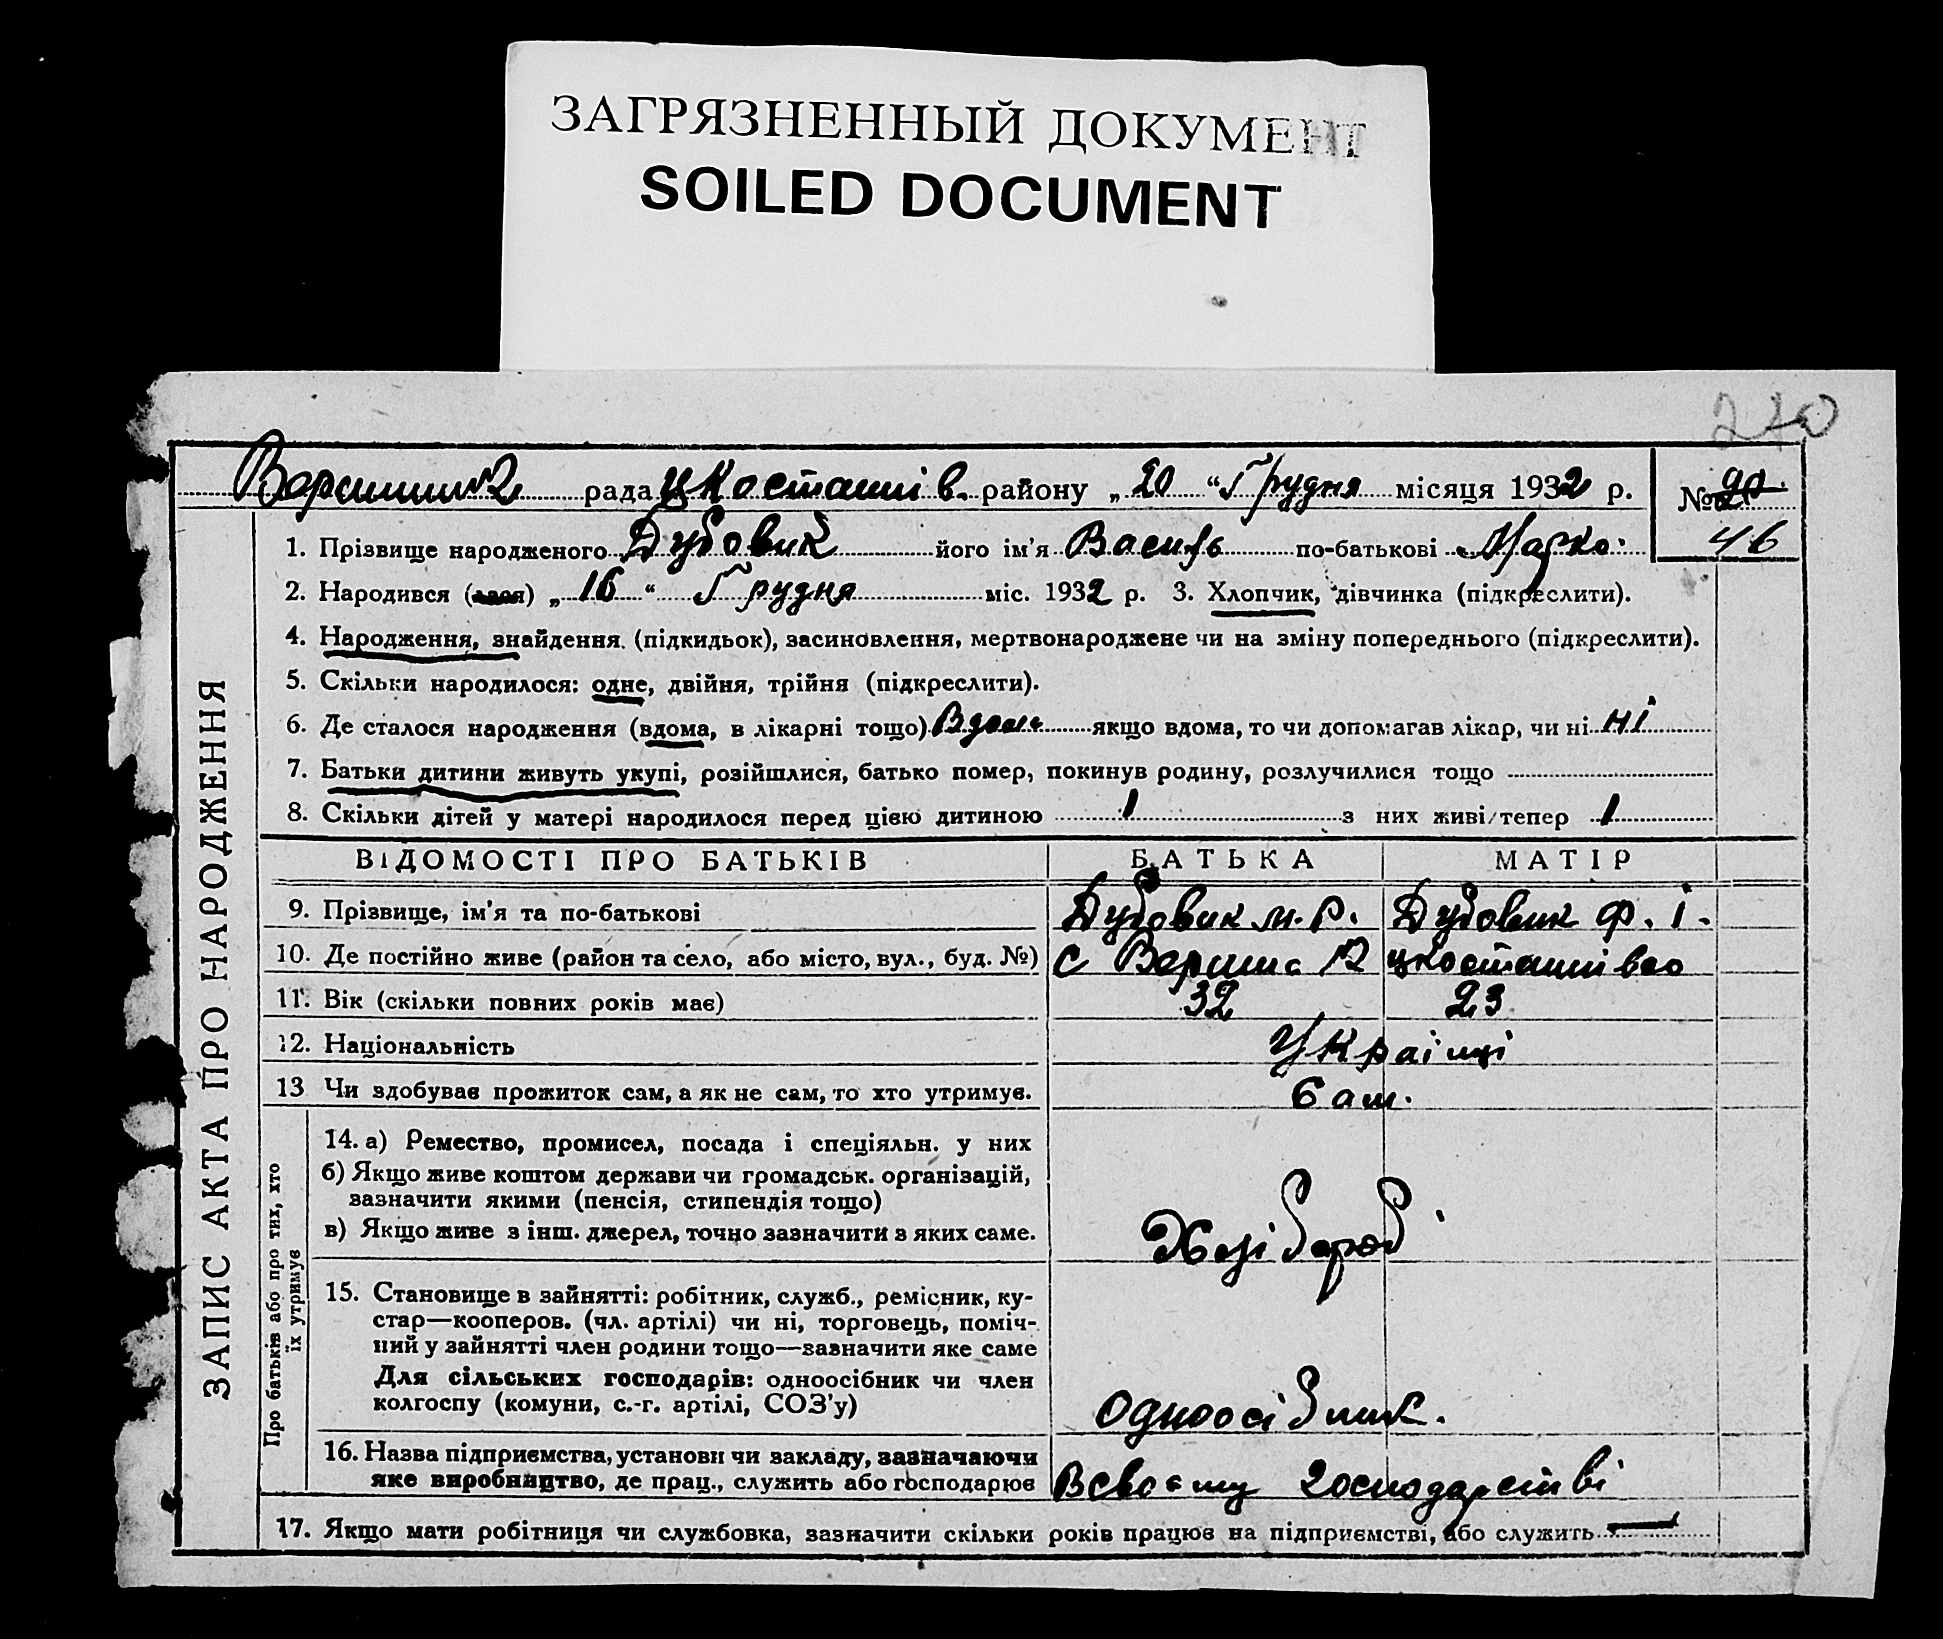 ЗАГРЯЗНЕННЫЙ ДОКУМЕНТ
SOILED DOCUMENT
270
рада Цкостантів. району „20“ Грудня місяця 1932 р. № 20.
46
1. Прізвище народженого Дубовик його ім'я Василь по-батькові Марко.
2. Народився (лася) „16“ Грудня міс. 1932 р. 3. Хлопчик, дівчинка (підкреслити).
4. Народження, знайдення (підкидьок), засиновлення, мертвонароджене чи на зміну попереднього (підкреслити).
5. Скільки народилося: одне, двійня, трійня (підкреслити).
6. Де сталося народження (вдома, в лікарні тощо) Вдома якщо вдома, то чи допомагав лікар, чи ні ні
7. Батьки дитини живуть укупі, розійшлися, батько помер, покинув родину, розлучилися тощо
8. Скільки дітей у матері народилося перед цією дитиною 1 з них живі тепер 1
ЗАПИС АКТА ПРО НАРОДЖЕННЯ
ВІДОМОСТІ ПРО БАТЬКІВ БАТЬКА МАТІР
9. Прізвище, ім'я та по-батькові Дубовик М. Р. Дубовик Ф. І.
10. Де постійно живе (район та село, або місто, вул., буд. №) с
11. Вік (скільки повних років має) 32 23
12. Національність Українці
13 Чи здобуває прожиток сам, а як не сам, то хто утримує. Сам.
Про батьків або про тих, хто їх утримує
14. а) Ремество, промисел, посада і спеціяльн. у них
б) Якщо живе коштом держави чи громадськ. організацій,
зазначити якими (пенсія, стипендія тощо)
в) Якщо живе з інш. джерел, точно зазначити з яких саме. Хлібороб
15. Становище в зайнятті: робітник, служб., ремісник, ку-
стар—кооперов. (чл. артілі) чи ні, торговець, поміч-
ний у зайнятті член родини тощо—зазначити яке саме
Для сільських господарів: одноосібник чи член
колгоспу (комуни, с.-г. артілі, СОЗ'у) Одноосібник.
16. Назва підприємства, установи чи закладу, зазначаючи
яке виробництво, де прац., служить або господарює В своєму господарстві
17. Якщо мати робітниця чи службовка, зазначити скільки років працює на підприємстві, або служить —